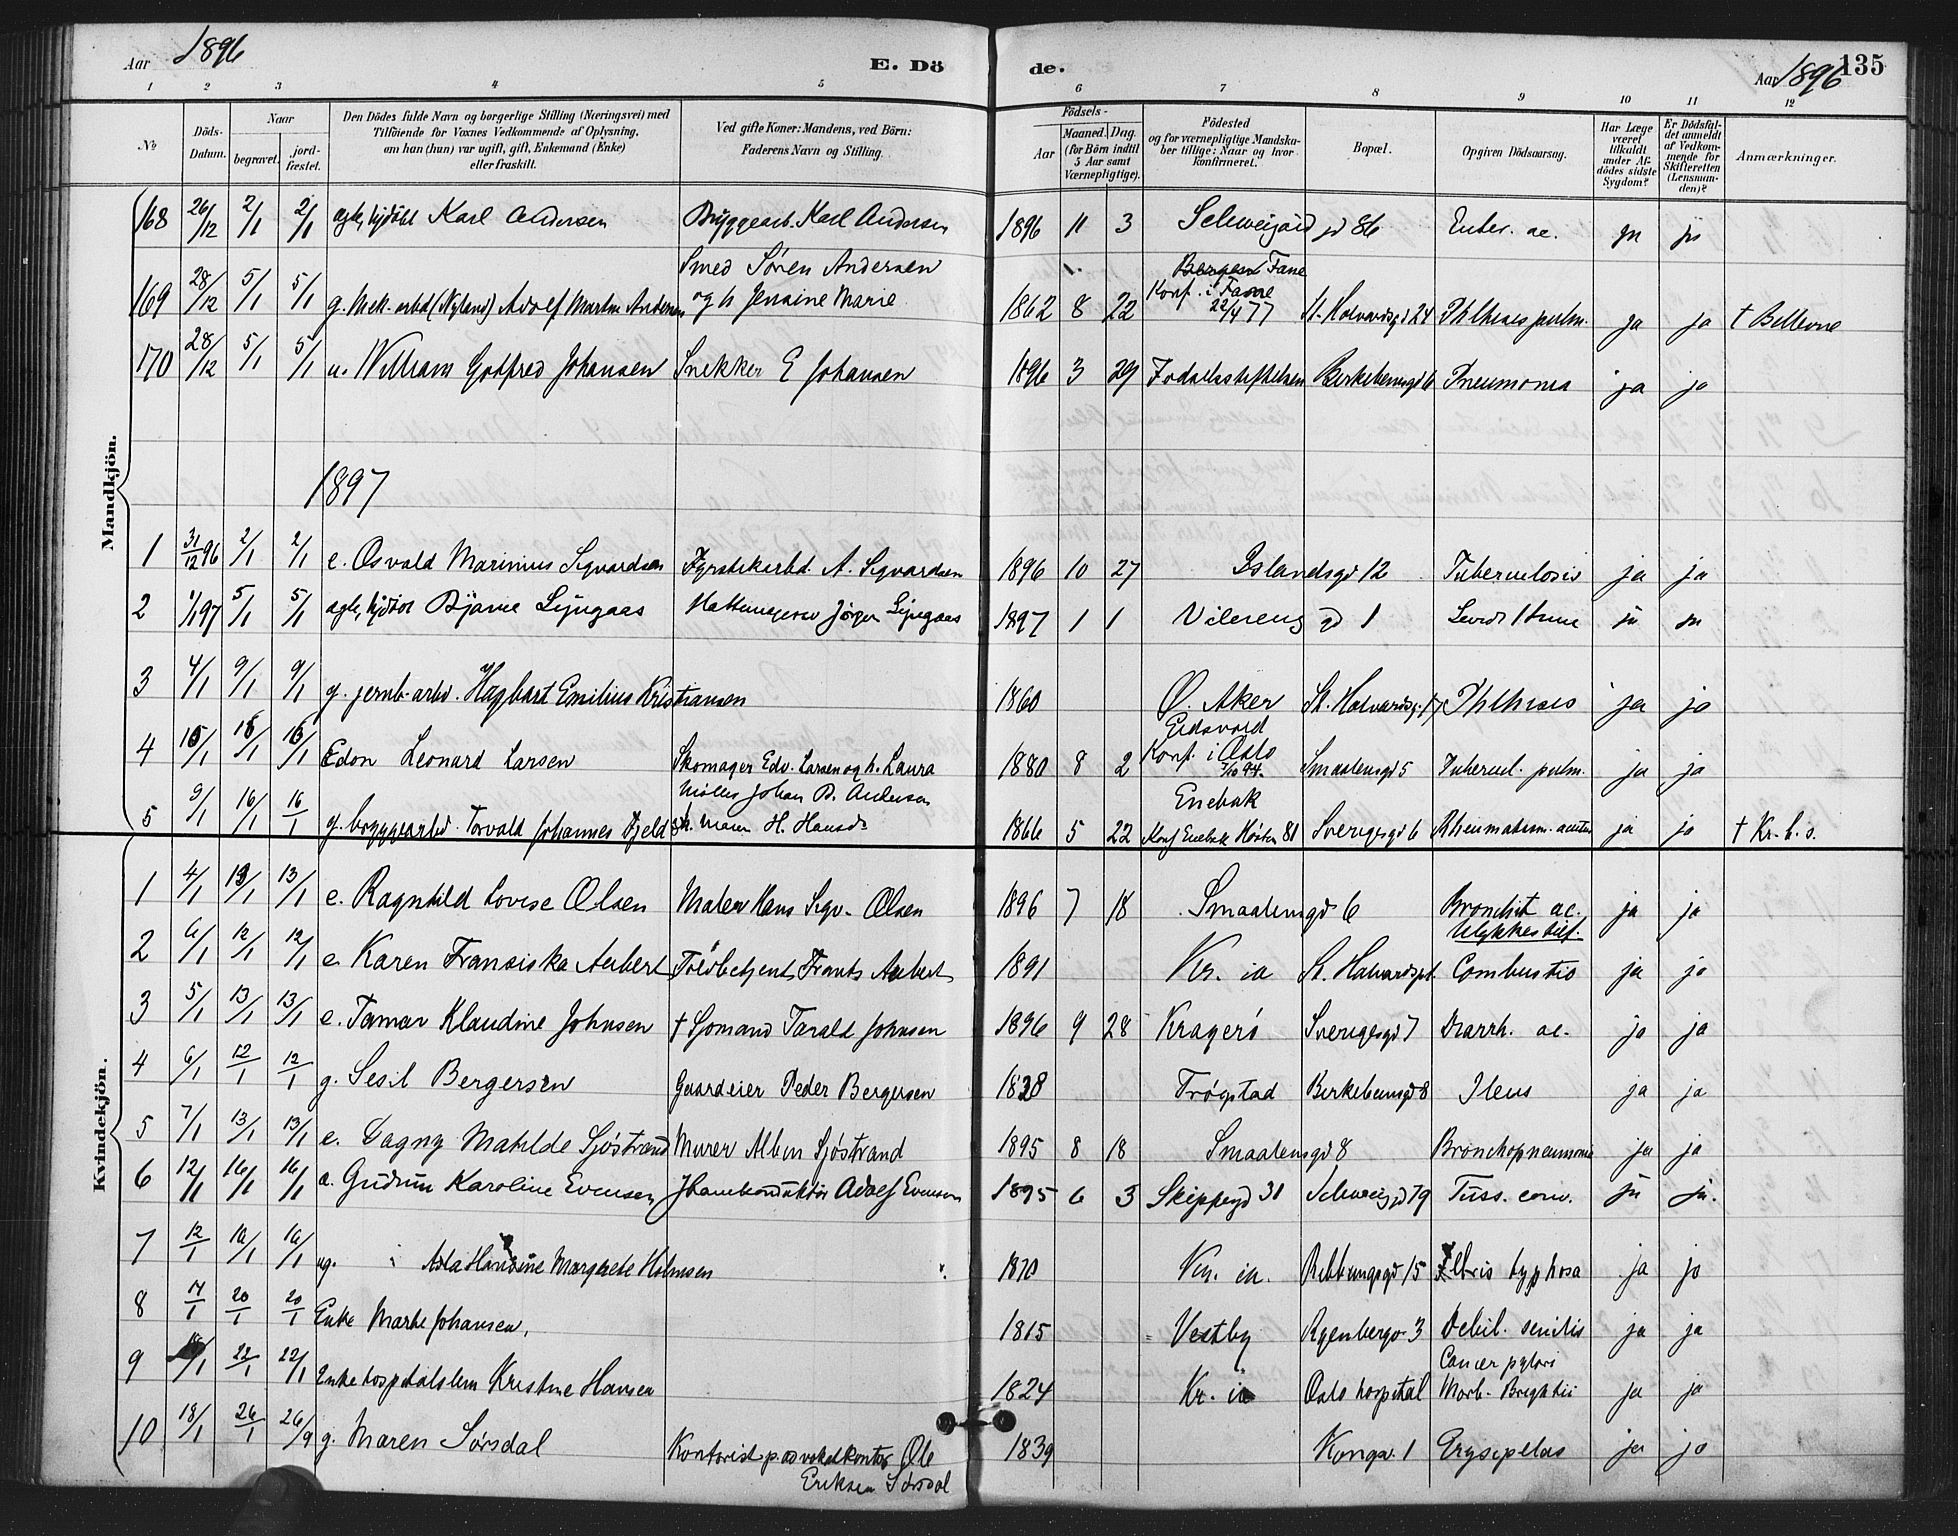 Aar 1896
E. Dö
de.
Aar 1896 135
1 2 3 4 5 6 7 8 9 10 11 12
№
Döds-
Datum.
Naar
begravet.
jord-
fæstet.
Den Dödes fulde Navn og borgerlige Stilling (Næringsvei) med
Tilföiende for Voxnes Vedkommende af Oplysning,
om han (hun) var ugift, gift, Enkemand (Enke)
eller fraskilt.
Ved gifte Koner: Mandens, ved Börn:
Faderens Navn og Stilling.
Födsels-
Aar
Maaned. Dag.
(for Börn indtil
5 Aar samt
Værnepligtige).
Födested
og for værnepligtige Mandska-
ber tillige: Naar og hvor
konfirmeret.
Bopæl.
Opgiven Dödsaarsag.
Har Læge
været
tilkaldt
under Af-
dödes sidste
Sygdom?
Er Dödsfal-
det anmeldt
af Vedkom-
mende for
Skifteretten
(Lensman-
den)?
Anmærkninger.
Mandkjön.
168 26/12 2/1 2/1 Karl Andersen Byggearb. Karl Andersen 1896 11 3 Schweigaardsgd 86 Enter. ac. ja ja
Smed Søren Andersen Bergen Fane
169 28/12 5/1 5/1 g. Mek. arbd (Nyland) Adolf Martin Andersen og h Jensine Marie 1862 8 22 Konf. i Fane 22/4 77 St. Halvardsgd 24 Phthisis pulm. ja ja † Bellevue
170 28/12 5/1 5/1 u. William Godfred Johansen Snekker E Johansen 1896 3 29 Fødselsstiftelsen Birkebeinergd 6 Pneumonia ja ja
1897
1 31/12 96 2/1 2/1 e. Osvald Marinius Sigvardsen Fyrstikarbd. A. Sigvardsen 1896 10 27 Islandsgd 12 Tuberculosis ja ja
2 1/1 97 5/1 5/1 Bjarne Ljugaas Jørgen Ljugaas 1897 1 1 Vålerenggd 1 ja ja
3 4/1 9/1 9/1 g. jernb. arbd. Hagbart Emilius Kristiansen 1860 Ø. Aker St. Halvardsg. 17 Phthisis ja ja
Eidsvold
4 10/1 15/1 15/1 Edon Leonard Larsen Skomager Edv. Larsen og h. Laura 1880 8 2 Konf. i Oslo 7/10 94. Smaalensgd 5 Tubercul. pulm. ja ja
Møller Johan B. Andersen Enebak
5 9/1 16/1 16/1 g. byggearbd. Torvald Johannes Fjeld h. Maren H. Hansd. 1866 5 22 Konf Enebak Høsten 81 Sverigesgd 6 Rheumatism. acutus ja ja † Kr. h. s.
Kvindekjön.
1 4/1 13/1 13/1 e. Ragnhild Lovise Olsen Maler Hans Sigv. Olsen 1896 7 18 Smaalensgd 6 Bronchit ac. ja ja
Ulykkestilf.
2 6/1 12/1 12/1 e Karen Fransiska Aubert Toldbetjent Frants Aubert 1891 Kr. ia St. Halvardspl. Combustio ja ja
3 5/1 13/1 13/1 e. Tamar Klaudine Johnsen † Sømand Tarald Johnsen 1896 9 28 Kragerö Sverigesgd 7 Diarrh. ac. ja ja
4 6/1 12/1 12/1 g. Sesil Bergersen Gaardeier Peder Bergersen 1828 Trögstad Birkebeinergd 8 Ileus ja ja
5 7/1 13/1 13/1 e. Dagny Matilde Sjöstrand Murer Albin Sjöstrand 1895 8 18 Smaalensgd 8 Bronchopneumonia ja ja
6 12/1 16/1 16/1 e. Gudrun Karoline Evensen Adolf Evensen 1895 6 3 Skippergd 31 Schweigd 79 Tuss. conv. ja ja.
7 12/1 16/1 16/1 ug. Asta Handine Margrete Holmsen 1870 Kr. ia. Ribbungsgd 15 Febris typhosa ja ja
8 14/1 20/1 20/1 Enke Marte Johansen. 1815 Vestby Ryenbergv 3 Debil. senilis ja ja
Cancer pylori
9 18/1 22/1 22/1 Enke hospitalslem Kristine Hansen 1824 Kr. ia Oslo hospital Morb. Brightii ja ja
10 18/1 26/1 26/9 g. Maren Sörsdal Kontorist p. advokatkontor Ole 1839 Kongsv. 1 Erysipelas ja ja
Eriksen Sörsdal